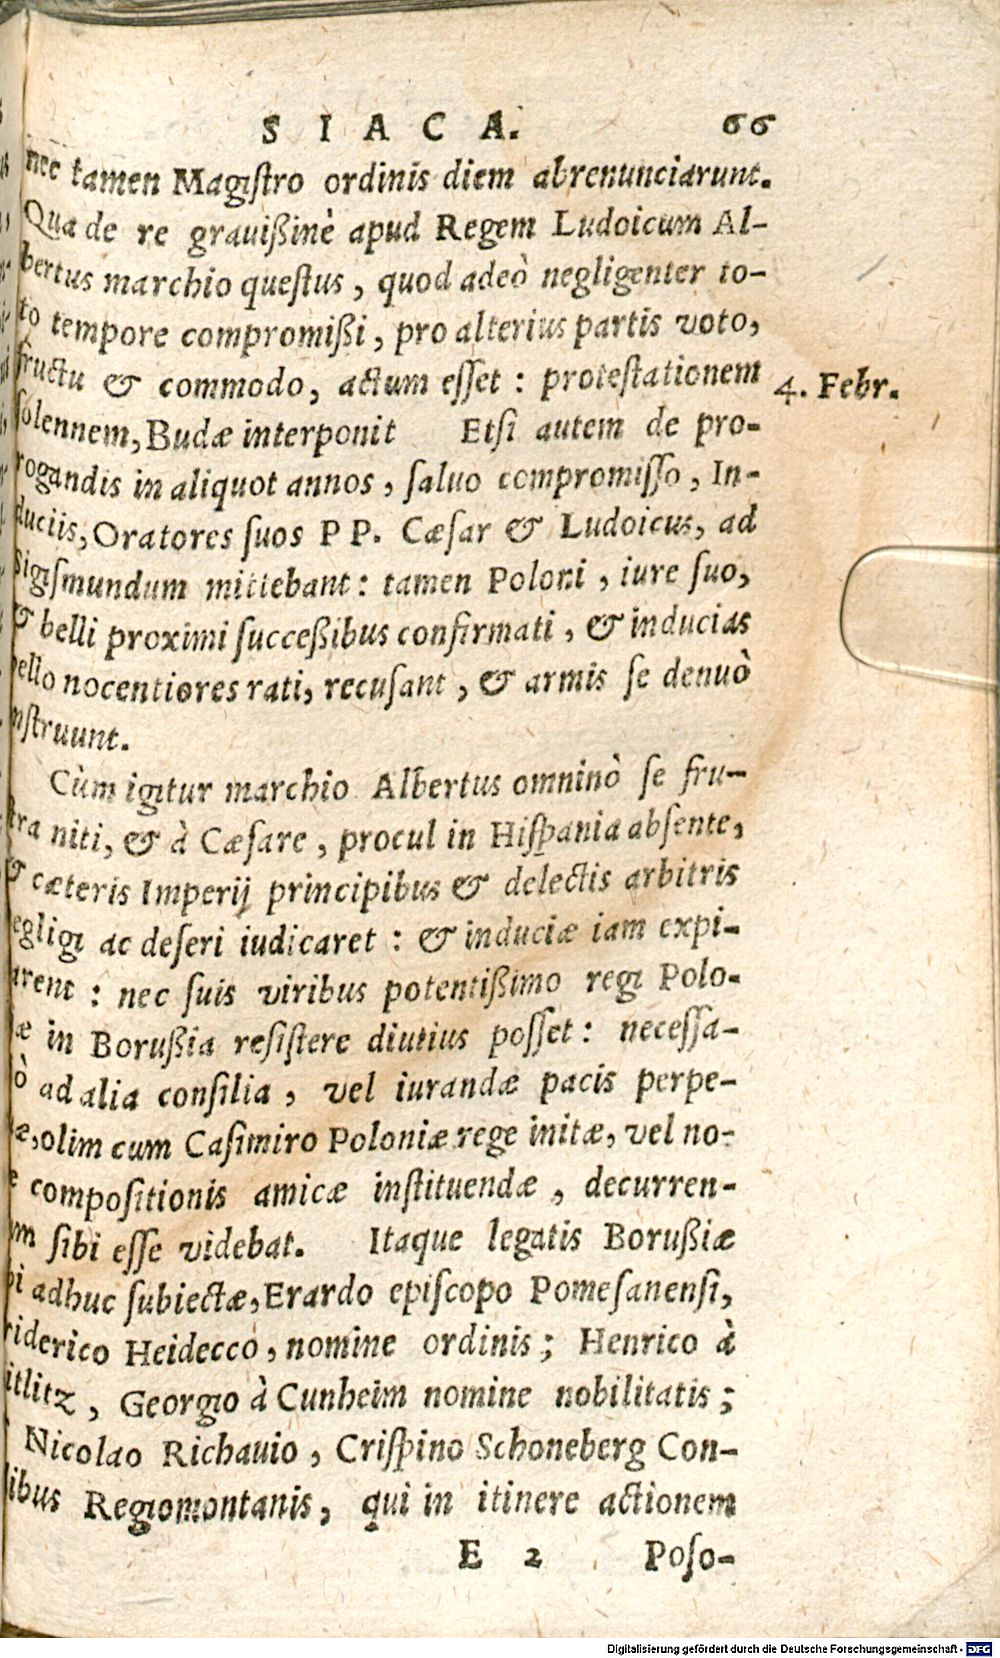 SIACA. 66
nec tamen Magiſtro ordinis diem abrenunciarunt.
Qua de re grauißinè apud Regem Ludoicum Al-
bertus marchio queſtus, quod adeò negligenter to-
to tempore compromißi, pro alterius partis voto,
fructu & commodo, actum eſſet: proteſtationem
4. Febr.
ſolennem, Budæ interponit Etſi autem de pro-
rogandis in aliquot annos, ſaluo compromiſſo, In-
duciis, Oratores ſuos PP. Cæſar & Ludoicus, ad
Sigiſmundum mittebant: tamen Poloni, iure ſuo,
& belli proximi succeßibus confirmati, & inducias
bello nocentiores rati, recuſant, & armis ſe denuò
nſtruunt.
Cùm igitur marchio Albertus omninò ſe fru-
ſtra niti, & à Cæſare, procul in Hiſpania abſente,
& cæteris Imperij principibus & delectis arbitris
egligi ac deſeri iudicaret: & induciæ iam expi-
arent: nec ſuis viribus potentißimo regi Polo-
æ in Borußia reſiſtere diutius poſſet: neceſſa-
ò ad alia conſilia, vel iurandæ pacis perpe-
æ, olim cum Caſimiro Poloniæ rege initæ, vel no-
e compoſitionis amicæ inſtituendæ, decurren-
um ſibi eſſe videbat. Itaque legatis Borußiæ
bi adhuc ſubiectæ, Erardo epiſcopo Pomeſanenſi,
riderico Heidecco, nomine ordinis; Henrico à
itlitz, Georgio à Cunheim nomine nobilitatis;
Nicolao Richauio, Criſpino Schoneberg Con-
ſibus Regiomontanis, qui in itinere actionem
E 2 Poſo-
Digitalisierung gefördert durch die Deutsche Forschungsgemeinschaft - DFG